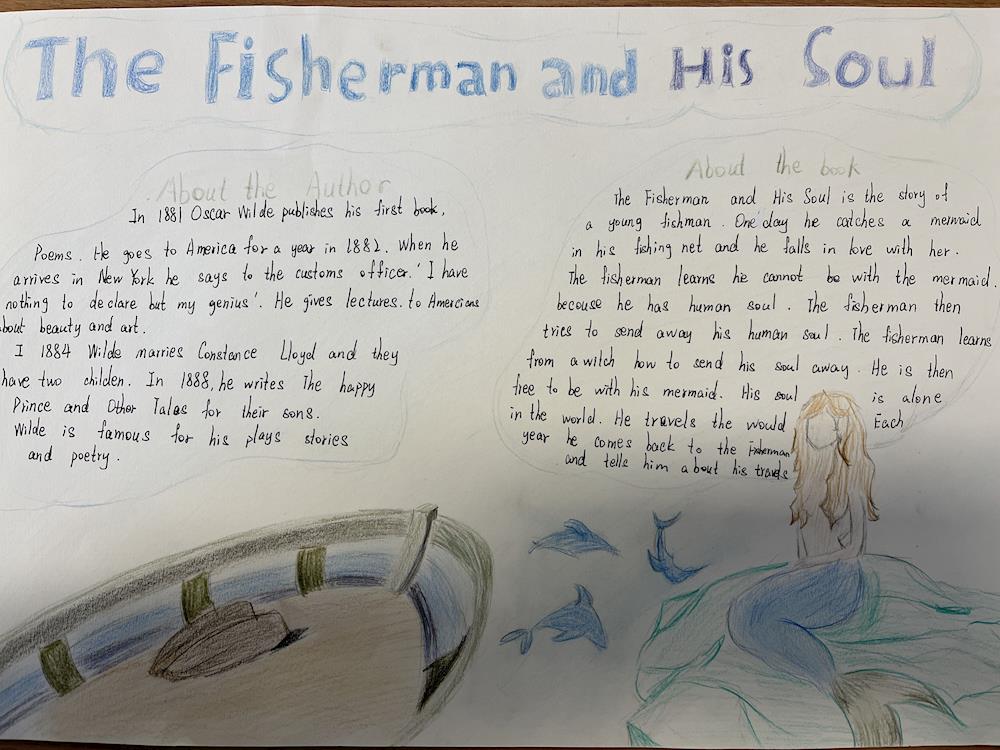 The Fisherman and His Soul
About the Author
In 1881 Oscar Wilde publishes his first book,
Poems. He goes to America for a year in 1882. When he
arrives in New York he says to the customs officer. 'I have
nothing to declare but my genius'. He gives lectures. to Amercians
about beauty and art.
I 1884 Wilde marries Constance Lloyd and they
have two childen. In 1888, he writes The happy
Prince and Other Tales for their sons.
Wilde is famous for his plays stories
and poetry.
About the book
The Fisherman and His Soul is the story of
a young fishman. One day he catches a mermaid
in his fishing net and he falls in love with her.
The fisherman learns he cannot be with the mermaid.
becouse he has human soul. The fisherman then
tries to send away his human soul. The fisherman learns
from a witch how to send his soul away. He is then
free to be with his mermaid. His soul is alone
in the world. He travels the would Each
year he comes back to the Fisherman
and tells him about his travels